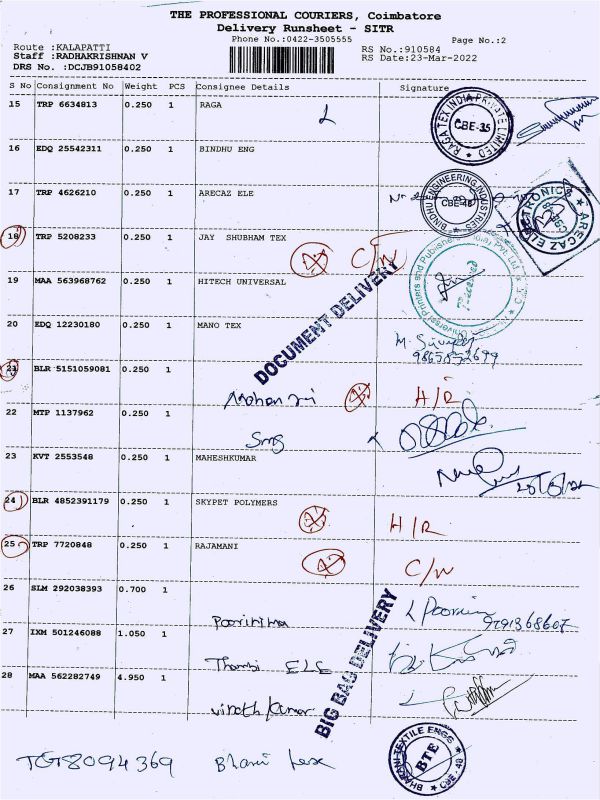 THE PROFESSIONAL COURIERS, Coimbatore
Delivery Runsheet - SITR
Phone No.:0422-3505555
Page No.:2
Route :KALAPATTI
Staff :RADHAKRISHNAN V
DRS No. :DCJB91058402
RS No.:910584
RS Date:23-Mar-2022
S No Consignment No Weight PCS Consignee Details Signature
15 TRP 6634813 0.250 1 RAGA
RAGA TEX INDIA PRIVATE LIMITED CBE-35
16 EDQ 25542311 0.250 1 BINDHU ENG
BINDHU ENGINEERING INDUSTRIES CBE-48
17 TRP 4626210 0.250 1 ARECAZ ELE
ARECAZ ELECTRONICS
18 TRP 5208233 0.250 1 JAY SHUBHAM TEX
C/N
19 MAA 563968762 0.250 1 HITECH UNIVERSAL
Universal Printers and Publishers Pvt Ltd
Received
20 EDQ 12230180 0.250 1 MANO TEX
DOCUMENT DELIVERY
21 BLR 5151059081 0.250 1
H/R
22 MTP 1137962 0.250 1
23 KVT 2553548 0.250 1 MAHESHKUMAR
24 BLR 4852391179 0.250 1 SKYPET POLYMERS
H/R
25 TRP 7720848 0.250 1 RAJAMANI
C/N
26 SLM 292038393 0.700 1
Poornima
27 IXM 501246088 1.050 1
Thambi ELE
28 MAA 562282749 4.950 1
Vinoth Kumar
BIG BAG DELIVERY
TGT8094369 Bhani tex
TEXTILE ENGG BTE CBE-48